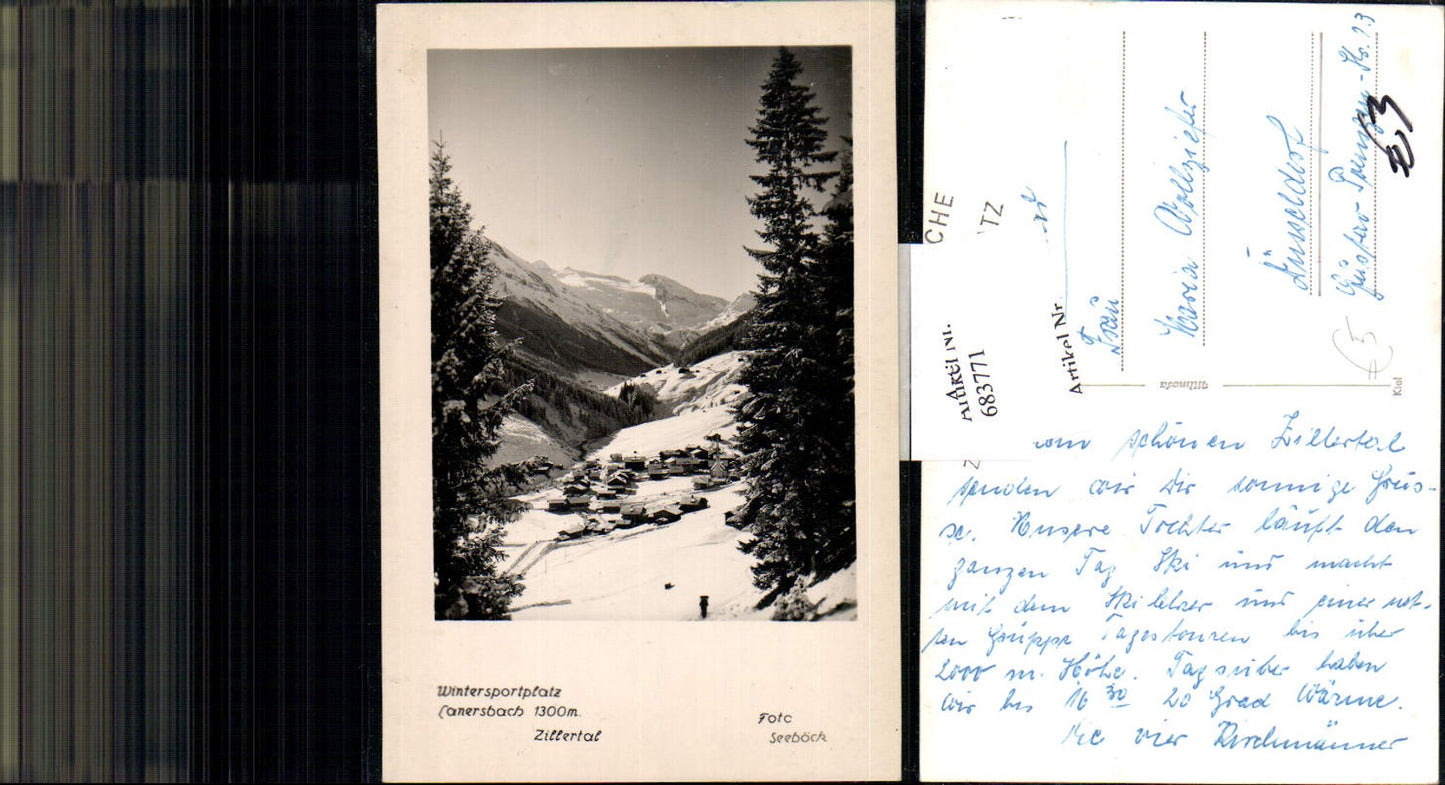 Wintersportplatz
Lanersbach 1300m.
Zillertal
Foto
Seeböck
CHE
TZ
Artikel Nr.
683771
Artikel Nr
Frau
Maria Vollziefer
Düsseldorf
Gustav - Poensgen - Str. 73
€3
€5
Ultmoda
Kiel
vom schönen Zillertal
senden wir Dir sonnige Grüs-
se. Unsere Tochter läuft den
ganzen Tag Ski und macht
mit dem Skilehrer und einer net-
ten Gruppe Tagestouren bis über
2000 m. Höhe. Tagsüber haben
wir bis 16 30 20 Grad Wärme.
Die vier Kirchmänner